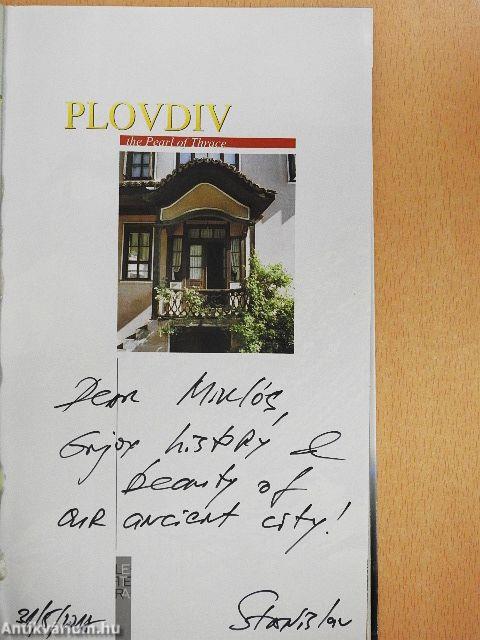 PLOVDIV
the Pearl of Thrace
Dear Miklós,
Enjoy history &
beauty of
our ancient city!
LE
TE
RA
Stanislav
Antikvarium.hu